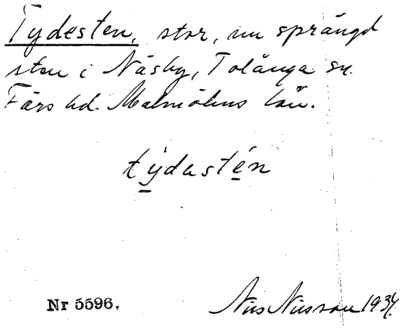 Tydesten, stor, nu sprängd
sten i Näsby, Tolånga sn.
Färs hd. Malmöhus län.
týdastén
Nr 5596.
Nils Nilsson 1934.